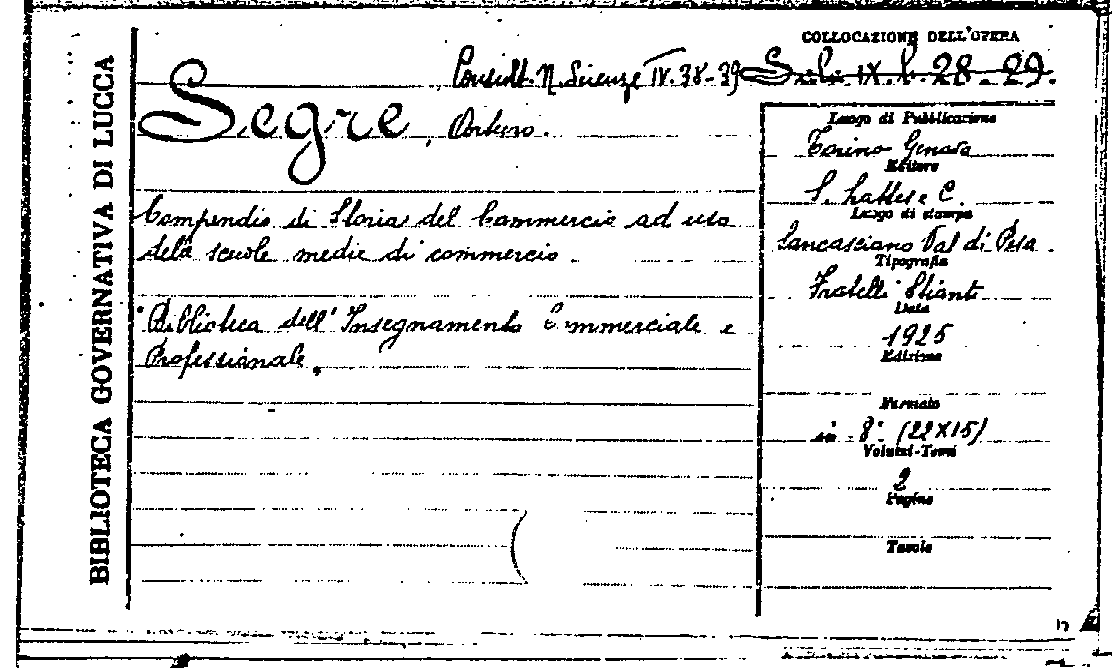 BIBLIOTECA GOVERNATIVA DI LUCCA
COLLOCAZIONE DELL'OPERA
Consult. N. Scienze IV. 38-39
Sal. IX. l. 28-29.
Segre, Arturo.
Compendio di Storia del Commercio ad uso
delle scuole medie di commercio.
Biblioteca dell'Insegnamento Commerciale e
Professionale.
Luogo di Pubblicazione
Torino Genova
Editore
S. Lattes e C.
Luogo di stampa
Sancasciano Val di Pesa.
Tipografia
Fratelli Stianti
Data
1925
Edizione
Formato
in 8° (22X15)
Volumi-Tomi
2
Pagine
Tavole